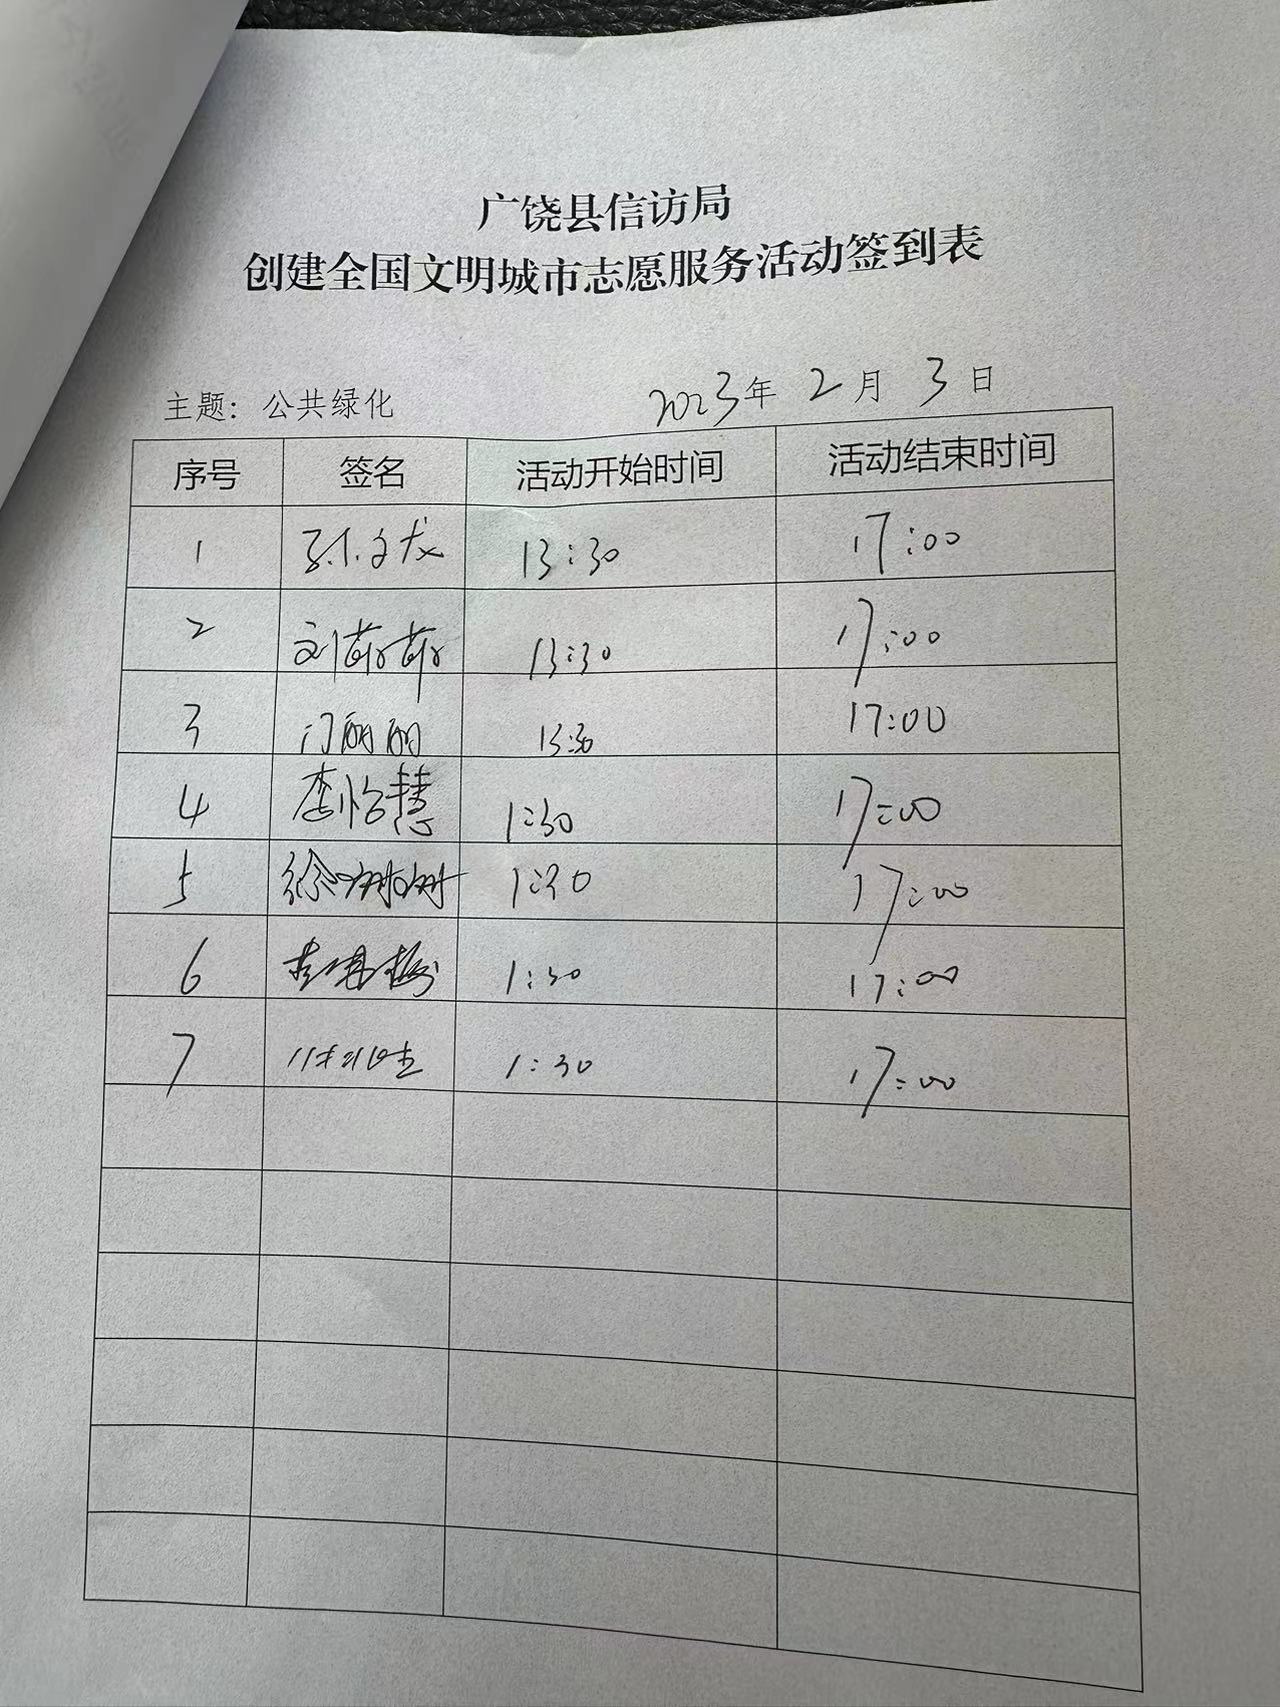 广饶县信访局
创建全国文明城市志愿服务活动签到表
主题：公共绿化 2023年 2月 3日
序号 签名 活动开始时间 活动结束时间
1 孙文龙 13:30 17:00
2 刘茹茹 13:30 17:00
3 门丽丽 13:30 17:00
4 李怡慧 1:30 17:00
5 徐姗姗 1:30 17:00
6 1:30 17:00
7 1:30 17:00